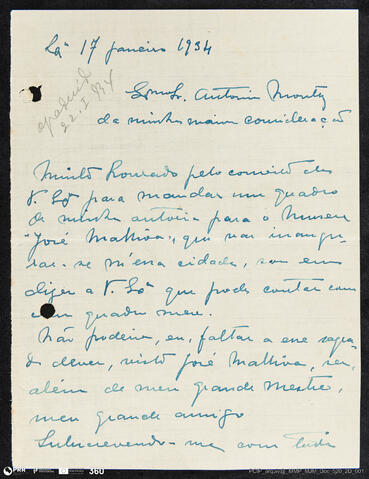 Lxª 17 janeiro 1934
22. I. 934
Exmo Sr. António Montez
da minha maior consideração
Muito honrado pelo convite de
V. Exª para mandar um quadro
de minha autoria para o Museu
"José Malhoa", que vae inaugu-
rar-se n'essa cidade, venho
dizer a V. Exª que pode contar com
um quadro meu.
Não poderia, eu, faltar a esse sagra-
do dever, visto José Malhoa, ser,
além de meu grande Mestre,
meu grande amigo
Subscrevendo-me com toda
PRR
360